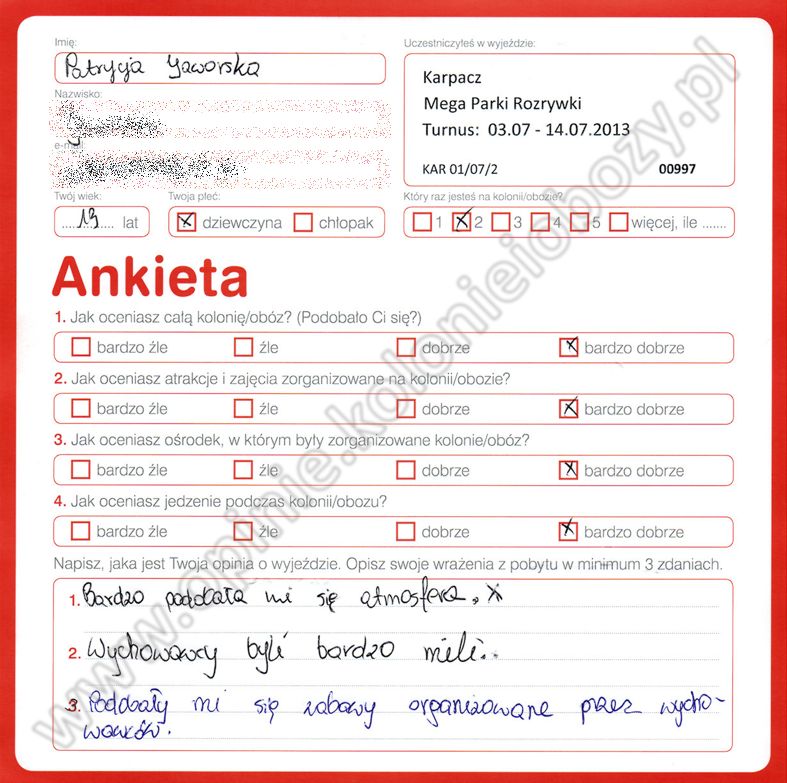 Imię:
Patrycja Jaworska
Nazwisko:
e-mail:
Twój wiek:
13 lat
Twoja płeć:
dziewczyna chłopak
Uczestniczyłeś w wyjeździe:
Karpacz
Mega Parki Rozrywki
Turnus: 03.07 - 14.07.2013
KAR 01/07/2 00997
Który raz jesteś na kolonii/obozie?
1 2 3 4 5 więcej, ile .......
Ankieta
1. Jak oceniasz całą kolonię/obóz? (Podobało Ci się?)
bardzo źle źle dobrze bardzo dobrze
2. Jak oceniasz atrakcje i zajęcia zorganizowane na kolonii/obozie?
bardzo źle źle dobrze bardzo dobrze
3. Jak oceniasz ośrodek, w którym były zorganizowane kolonie/obóz?
bardzo źle źle dobrze bardzo dobrze
4. Jak oceniasz jedzenie podczas kolonii/obozu?
bardzo źle źle dobrze bardzo dobrze
Napisz, jaka jest Twoja opinia o wyjeździe. Opisz swoje wrażenia z pobytu w minimum 3 zdaniach.
1. Bardzo podobała mi się atmosfera.
2. Wychowawcy byli bardzo mili.
3. Podobały mi się zabawy organizowane przez wycho-
wawców.
www.opinie.kolonieiobozy.pl